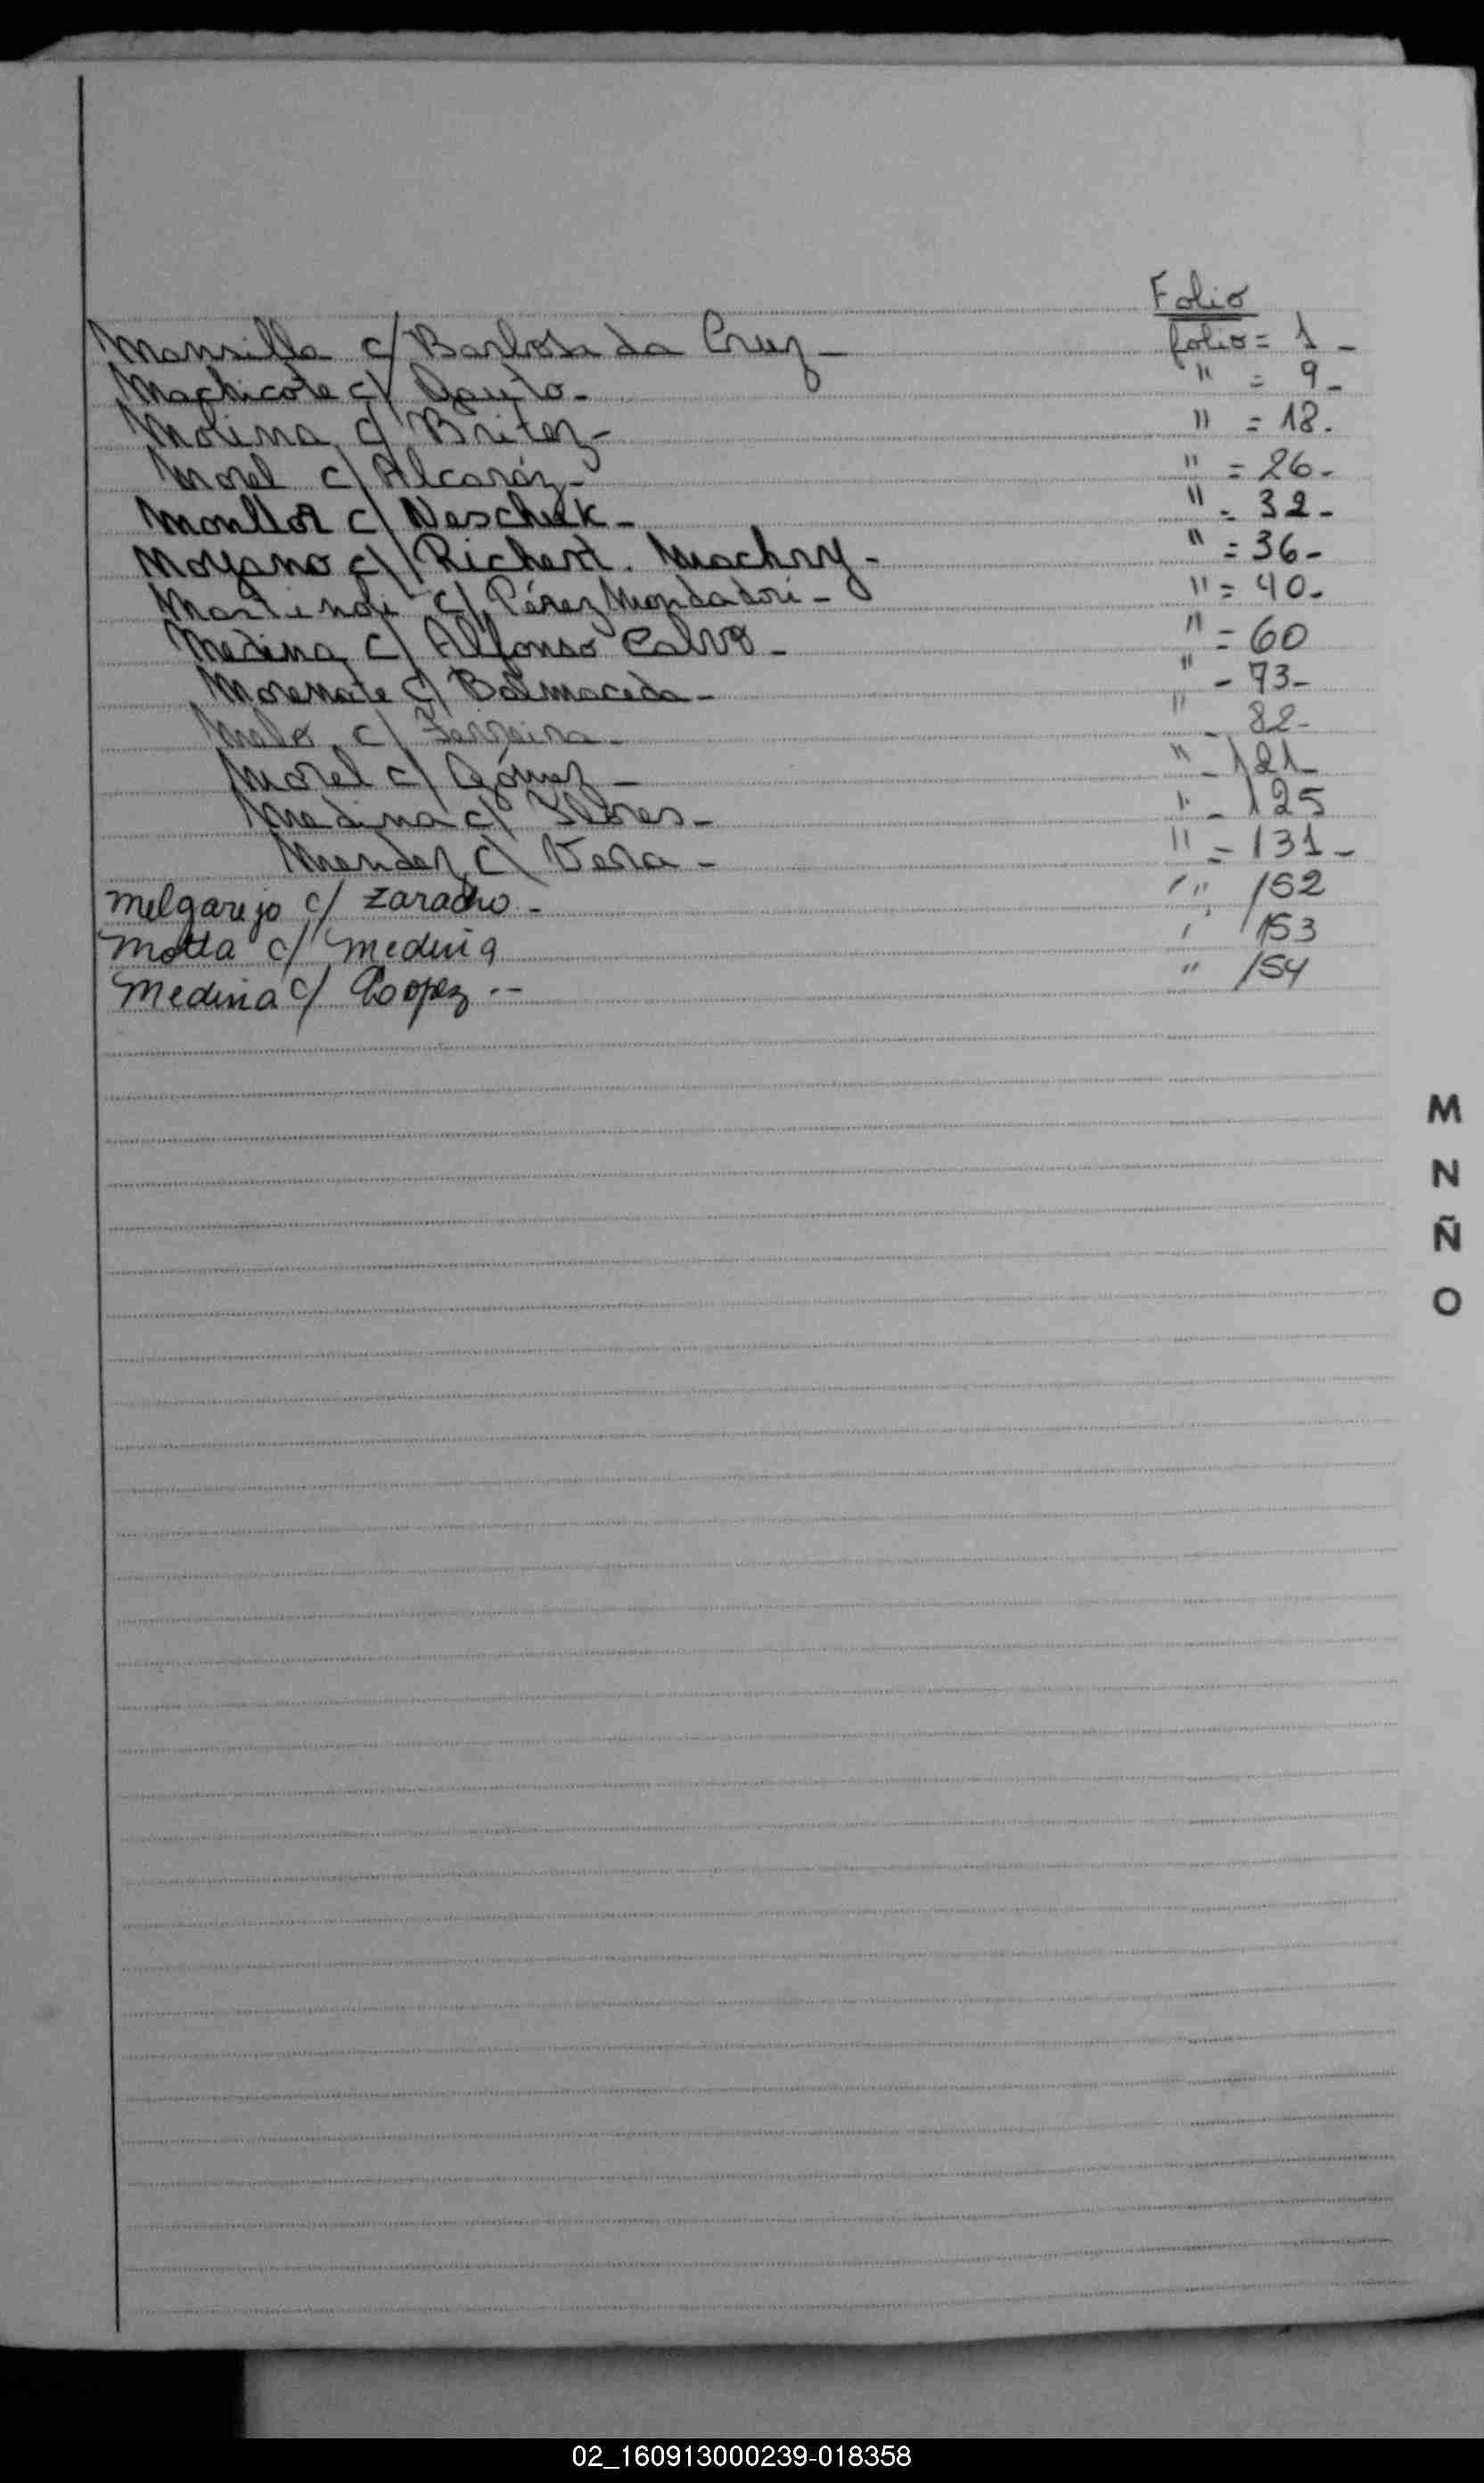 Folio
Mansilla c/ Barbosa da Cruz - folio = 1 -
Machicote c/ Gauto - " = 9 -
Molina c/ Britez - " = 18.
Morel c/ Alcaráz - " = 26 -
Monllor c/ Neschuk - " = 32 -
Moyano c/ Richert. Mochny - " = 36 -
c/ Pérez Mondadori - " = 40 -
Medina c/ Alfonso Calvo - " = 60
c/ Balmaceda - " - 73 -
Melo c/ Ferreira - " - 82 -
Morel c/ Gómez - " - 121
Medina c/ Flores - " - 125
Mendez c/ Vera - " - 131 -
Melgarejo c/ Zaracho - " 152
Motta c/ Medina " 153
Medina c/ Loopez -- " 154
M
N
Ñ
O
02_160913000239-018358